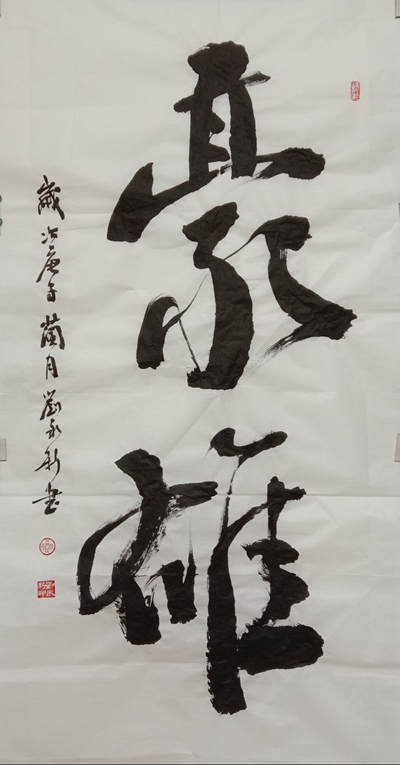 豪雄
歲次庚子蘭月劉永新書